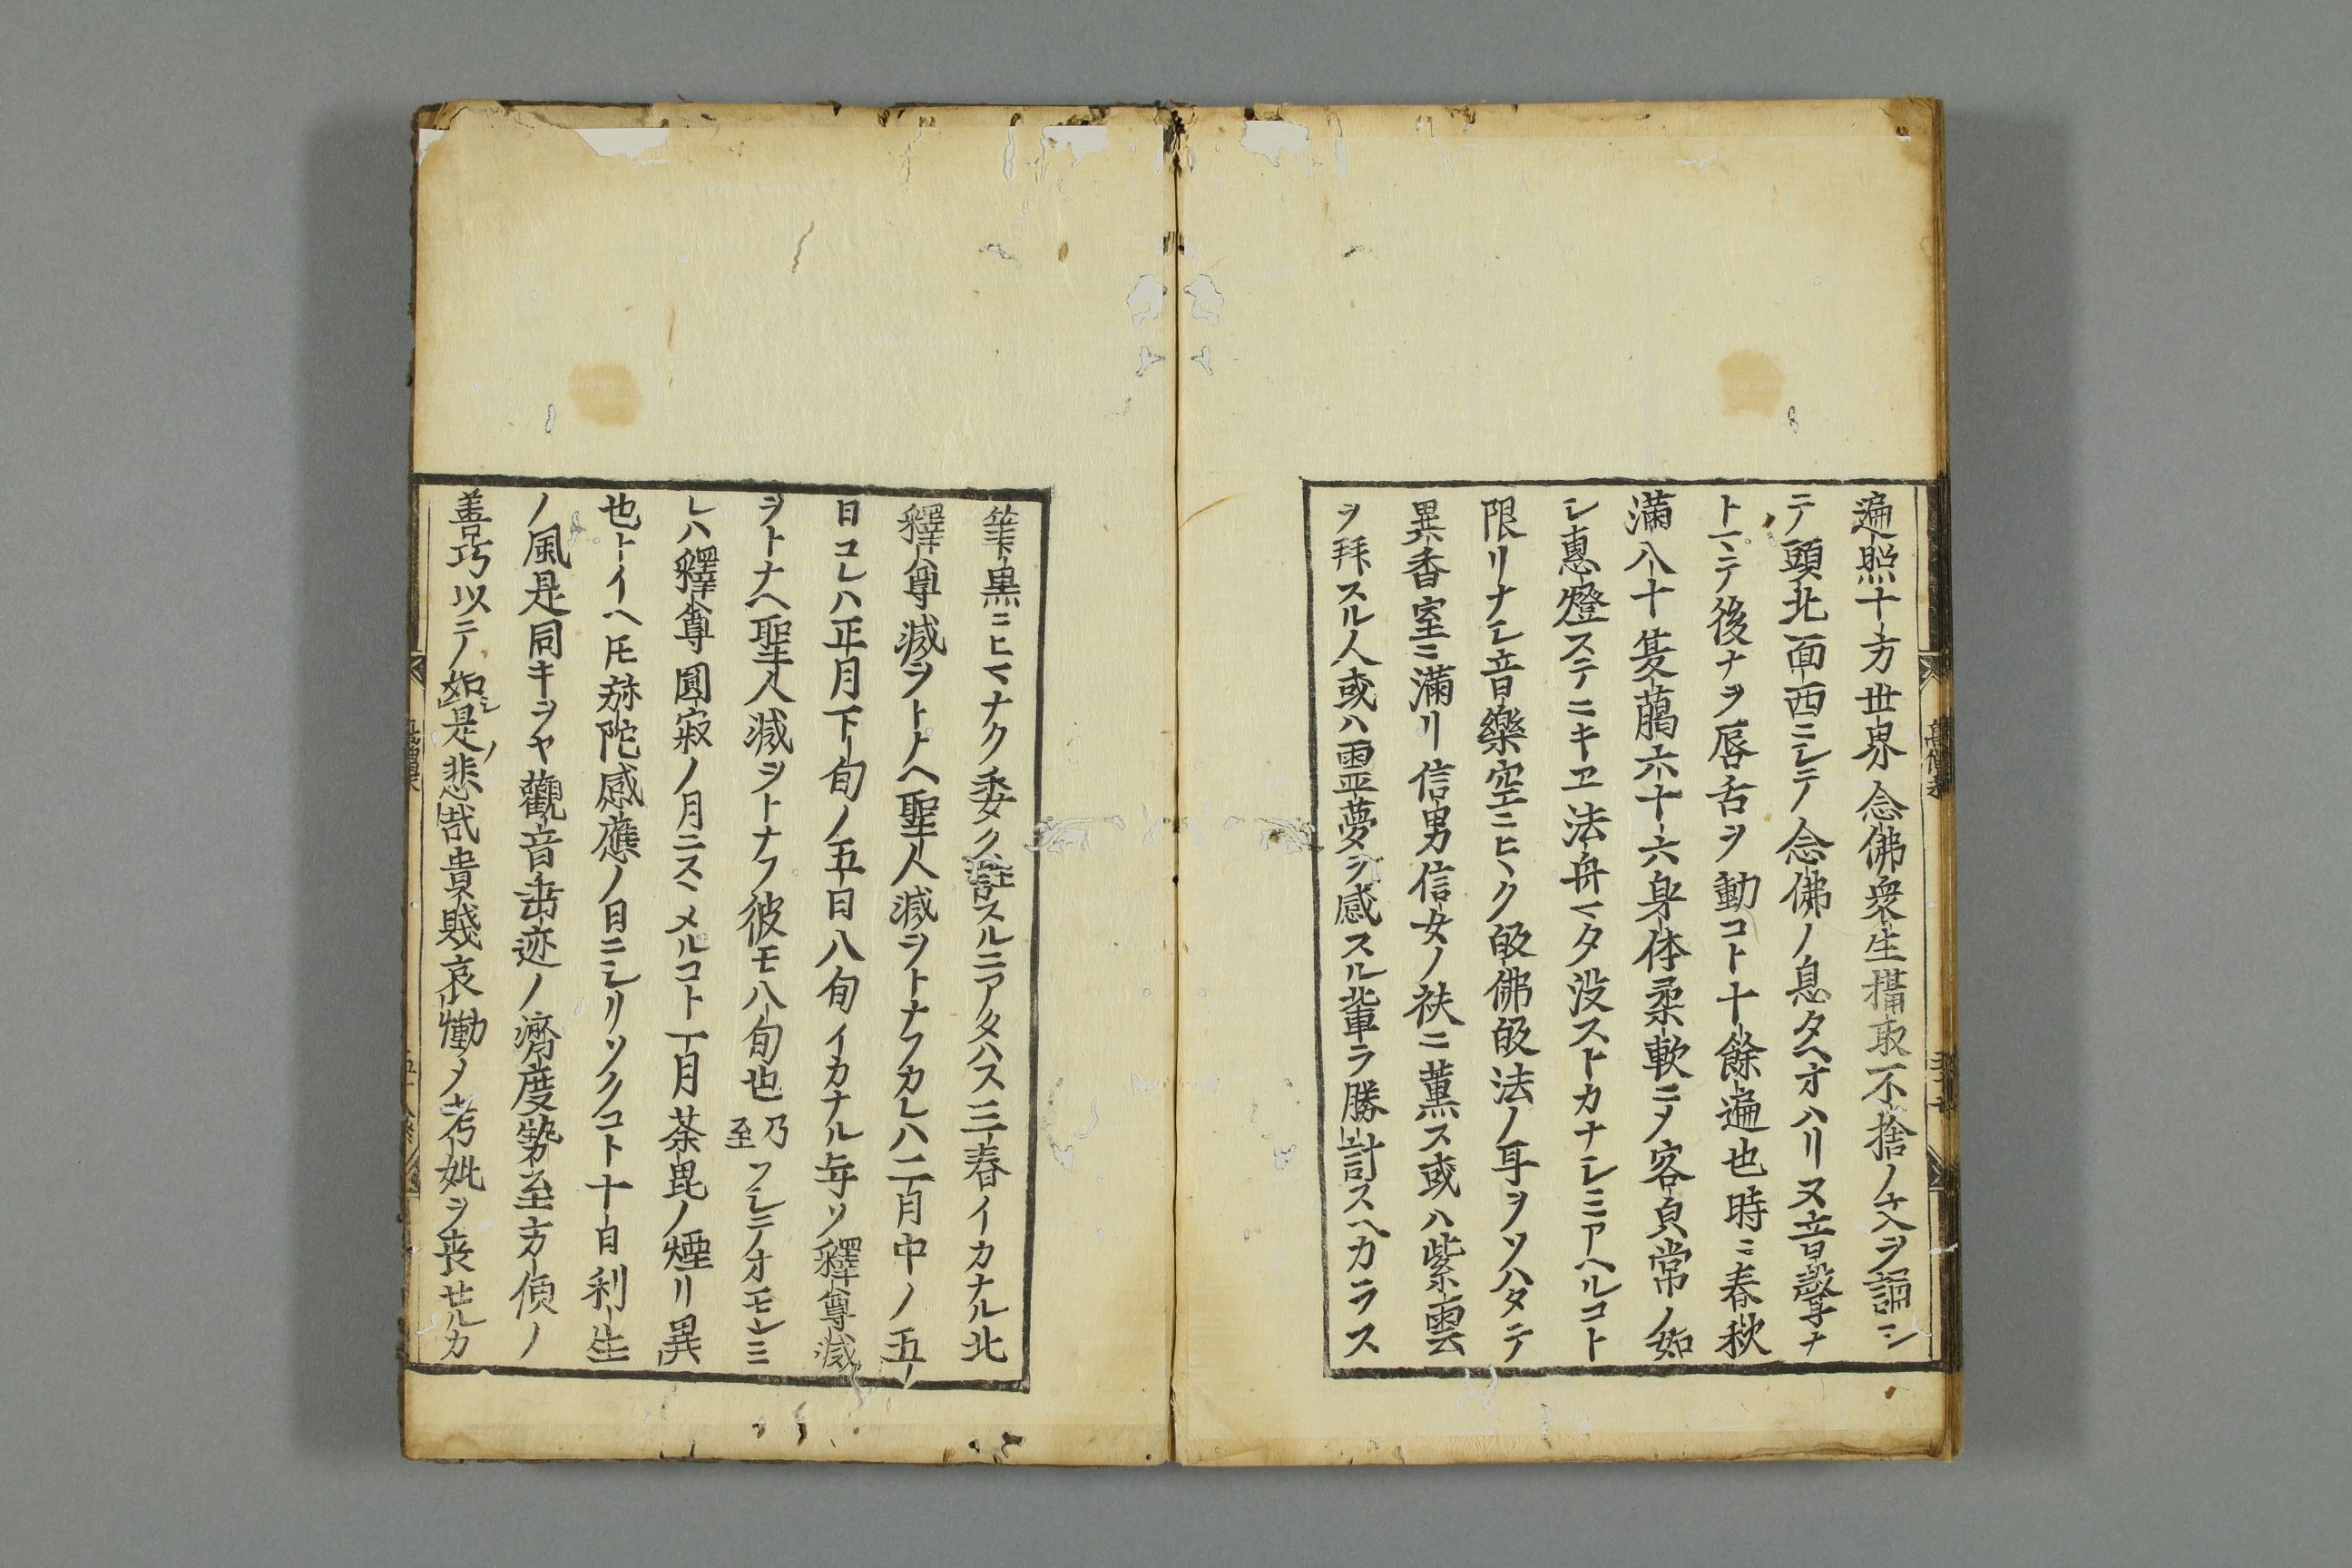 遍照十方世界念佛衆生攝取不捨ノ文ヲ誦シ
テ頭北面西ニシテ念佛ノ息タヘオハリヌ音聲ナ
トマテ後ナヲ唇舌ヲ動コト十餘遍也時ニ春秋
滿八十夏﨟六十六身体柔軟ニメ容貞常ノ如
シ惠燈ステニキエ法舟マタ没ストカナシミアヘルコト
限リナシ音樂空ニヒヽク皈佛皈法ノ耳ヲソハタテ
異香室ニ滿リ信男信女ノ袂ニ薫ス或ハ紫雲
ヲ拜スル人或ハ霊夢ヲ感スル輩ラ勝計スヘカラス
筆黒ニヒマナク委ク註スルニアタハス三春イカナル北
釋尊滅ヲトナヘ聖人滅ヲトナフカレハ二月中ノ五
日コレハ正月下旬ノ五日八旬イカナル年ソ釋尊滅
ヲトナヘ聖人滅ヲトナフ彼モ八旬也乃至フシテオモンミ
レハ釋尊圓寂ノ月ニスヽメルコト一月荼毘ノ煙リ異
也トイヘ𪜈弥陀感應ノ日ニシリソクコト十日利生
ノ風是同キヲヤ觀音垂迹ノ濟度勢至方便ノ
善巧以テ如シ是ノ悲哉貴賤哀慟メ考妣ヲ喪セルカ